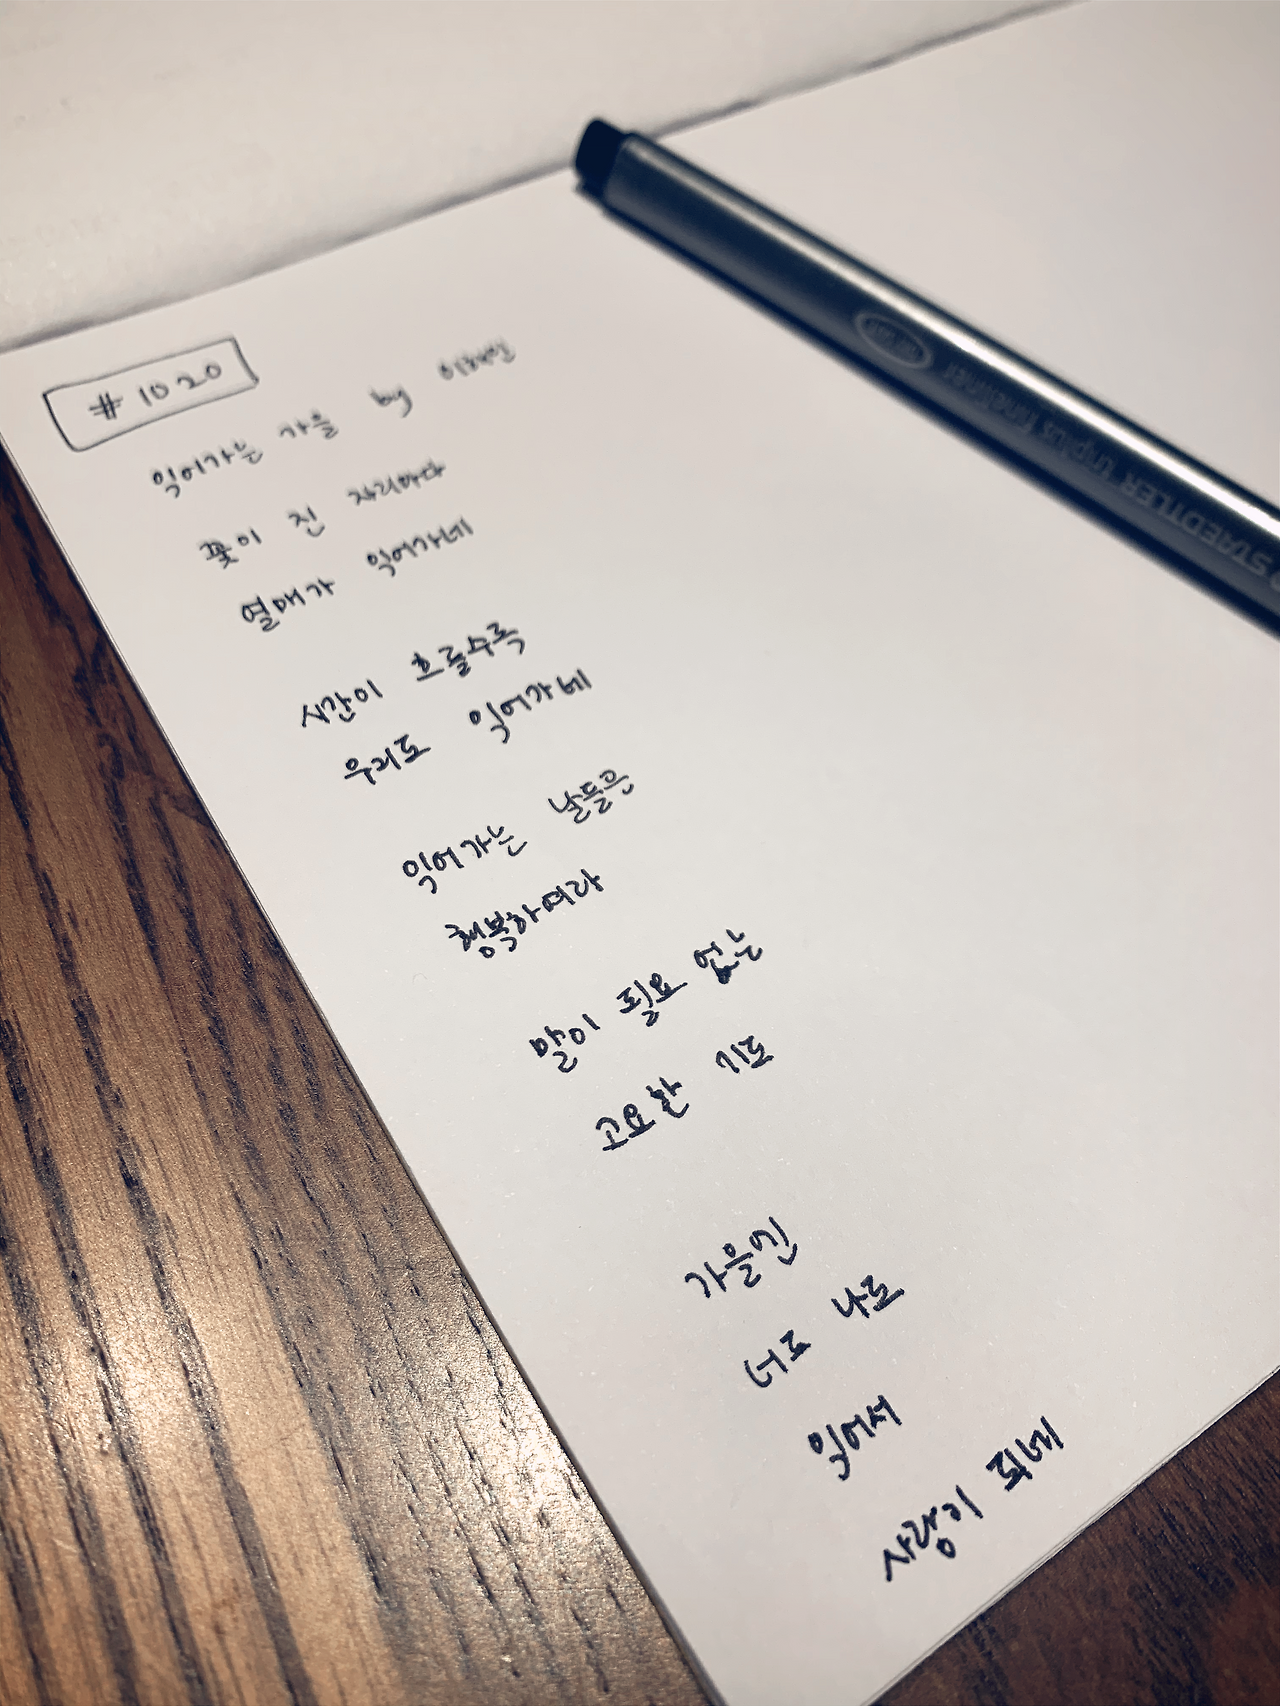 # 1020
익어가는 가을 by 이해인
꽃이 진 자리마다
열매가 익어가네
시간이 흐를수록
우리도 익어가네
익어가는 날들은
행복하여라
말이 필요 없는
고요한 기도
가을엔
너도 나도
익어서
사랑이 되네
STAEDTLER triplus fineliner